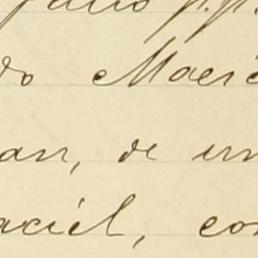 Julio p.p.
do Maci
an, de un
aciel, con